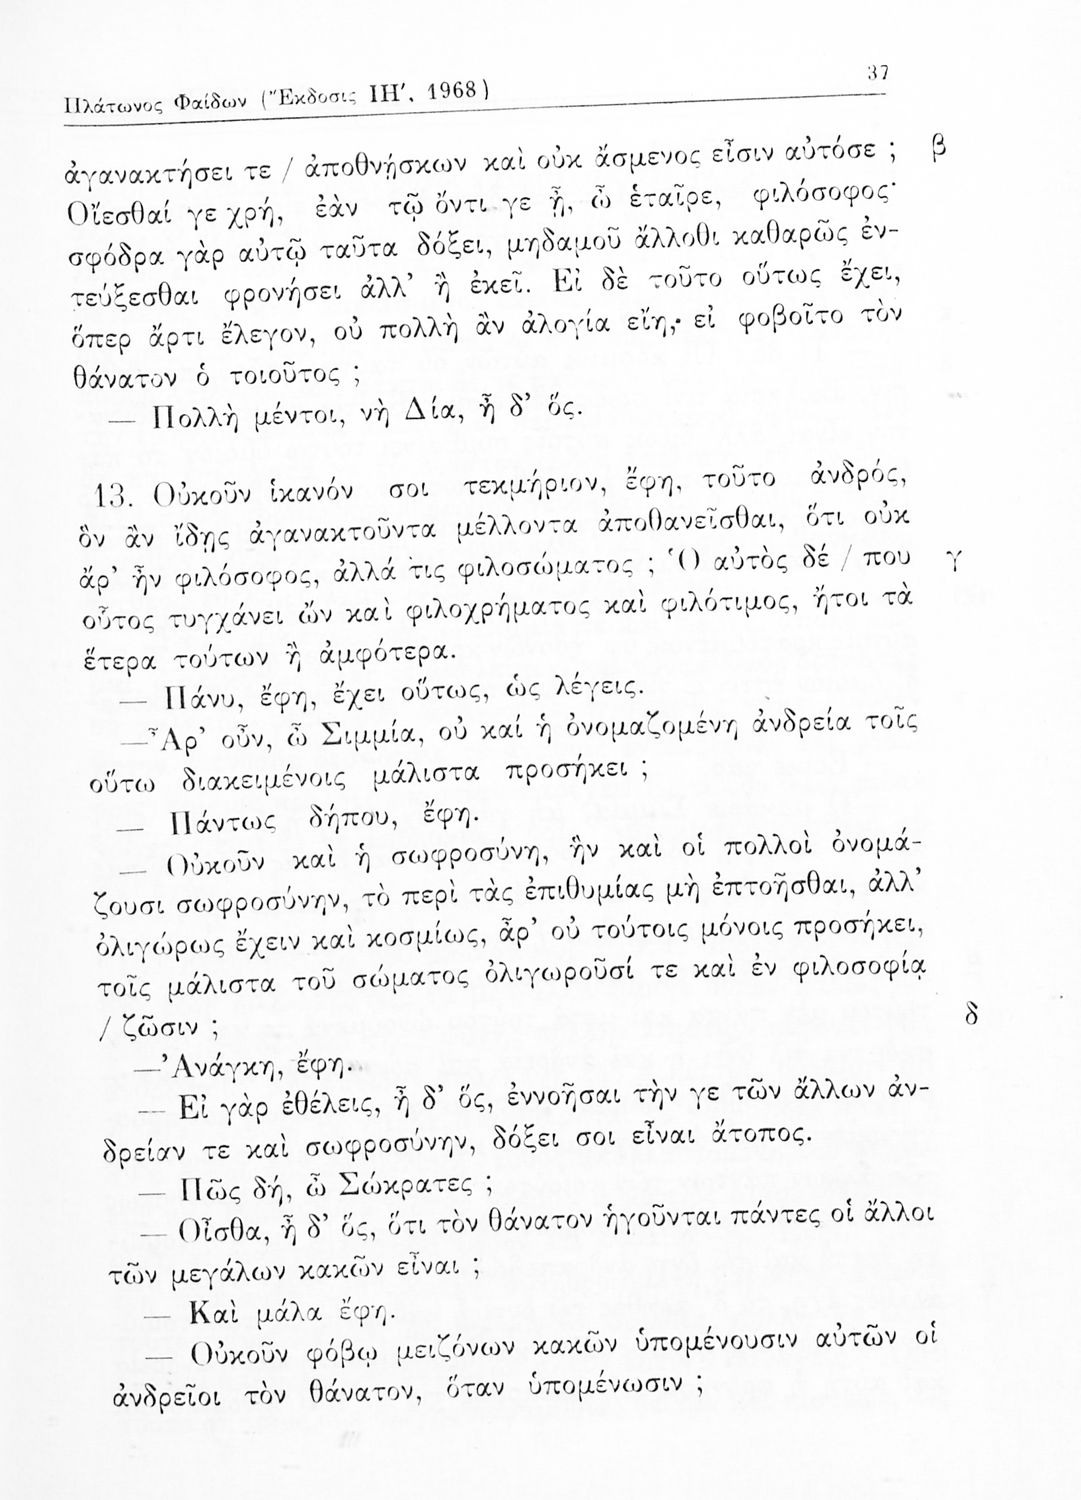 Πλάτωνος Φαίδων (Ἔκδοσις ΙΗ', 1968)
37
ἀγανακτήσει τε / ἀποθνῄσκων καὶ οὐκ ἄσμενος εἶσιν αὐτόσε ; β
Οἴεσθαί γε χρή, ἐὰν τῷ ὄντι γε ᾖ, ὦ ἑταῖρε, φιλόσοφος·
σφόδρα γὰρ αὐτῷ ταῦτα δόξει, μηδαμοῦ ἄλλοθι καθαρῶς ἐν-
τεύξεσθαι φρονήσει ἀλλ' ἢ ἐκεῖ. Εἰ δὲ τοῦτο οὕτως ἔχει,
ὅπερ ἄρτι ἔλεγον, οὐ πολλὴ ἂν ἀλογία εἴη, εἰ φοβοῖτο τὸν
θάνατον ὁ τοιοῦτος ;
— Πολλὴ μέντοι, νὴ Δία, ἦ δ' ὅς.
13. Οὐκοῦν ἱκανόν σοι τεκμήριον, ἔφη, τοῦτο ἀνδρός,
ὃν ἂν ἴδῃς ἀγανακτοῦντα μέλλοντα ἀποθανεῖσθαι, ὅτι οὐκ
ἄρ' ἦν φιλόσοφος, ἀλλά τις φιλοσώματος ; Ὁ αὐτὸς δέ / που γ
οὗτος τυγχάνει ὢν καὶ φιλοχρήματος καὶ φιλότιμος, ἤτοι τὰ
ἕτερα τούτων ἢ ἀμφότερα.
— Πάνυ, ἔφη, ἔχει οὕτως, ὡς λέγεις.
—Ἆρ' οὖν, ὦ Σιμμία, οὐ καί ἡ ὀνομαζομένη ἀνδρεία τοῖς
οὕτω διακειμένοις μάλιστα προσήκει ;
— Πάντως δήπου, ἔφη.
— Οὐκοῦν καὶ ἡ σωφροσύνη, ἣν καὶ οἱ πολλοὶ ὀνομά-
ζουσι σωφροσύνην, τὸ περὶ τὰς ἐπιθυμίας μὴ ἐπτοῆσθαι, ἀλλ'
ὀλιγώρως ἔχειν καὶ κοσμίως, ἆρ' οὐ τούτοις μόνοις προσήκει,
τοῖς μάλιστα τοῦ σώματος ὀλιγωροῦσί τε καὶ ἐν φιλοσοφίᾳ
/ ζῶσιν ; δ
—Ἀνάγκη, ἔφη.
— Εἰ γὰρ ἐθέλεις, ἦ δ' ὅς, ἐννοῆσαι τὴν γε τῶν ἄλλων ἀν-
δρείαν τε καὶ σωφροσύνην, δόξει σοι εἶναι ἄτοπος.
— Πῶς δή, ὦ Σώκρατες ;
— Οἶσθα, ἦ δ' ὅς, ὅτι τὸν θάνατον ἡγοῦνται πάντες οἱ ἄλλοι
τῶν μεγάλων κακῶν εἶναι ;
— Καὶ μάλα ἔφη.
— Οὐκοῦν φόβῳ μειζόνων κακῶν ὑπομένουσιν αὐτῶν οἱ
ἀνδρεῖοι τὸν θάνατον, ὅταν ὑπομένωσιν ;